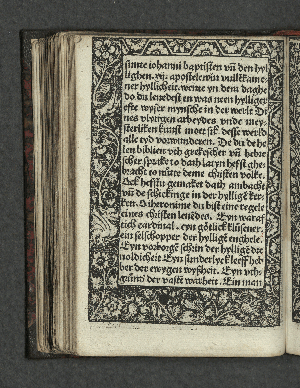 sinne iohanni baptisten vñ den hyl
lighen. xij. apostelen in vulkkame
ner hyllicheit. wente yn dem daghe
do du leuedest en was nein hylliger
efte wyser mynsche in der werlt Di
nes vlytigen arbeydes vnde mey-
sterliken kunst moet sik desse werld
alle tyd vorwunderen. De du de he
len biblien vth grekescher vñ hebre
scher sprake to dath latyn hefst ghe
bracht to nutte deme cristen volke.
Ock hefstu gemaket dath ambacht
vñ de schickinge in der hyllige ker-
ken. O iheronime du bist eine regele
eines cristen leuēdes. Eyn waraf
tich cardinal. eyn götlick klusener.
ein selschopper der hyllige enghele.
Eyn vorborge schrin der hyllige dre
uoldicheit Eyn sunderlyck leeff heb
ber der ewygen wyszheit. Eyn vth
grund der vaste warheit. Ein man